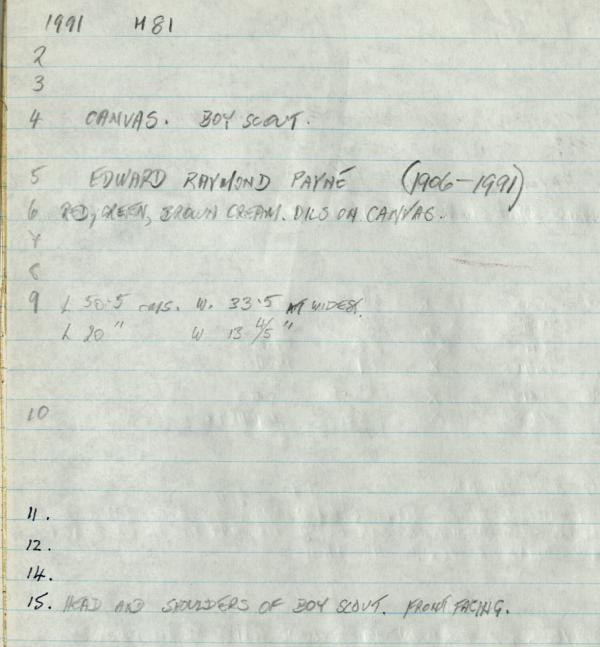 1991 H81
2
3
4 CANVAS. BOY SCOUT.
5 EDWARD RAYMOND PAYNE (1906-1991)
6 RED, GREEN, BROWN CREAM. OILS ON CANVAS.
7
8
9 L 50.5 cms. W. 33.5 AT WIDEST.
L 20" W 13 4/5"
10
11.
12.
14.
15. HEAD AND SHOULDERS OF BOY SCOUT. FRONT FACING.